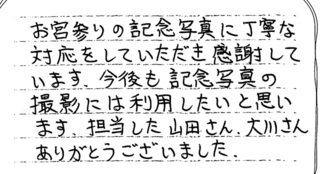 お宮参りの記念写真に丁寧な
対応をしていただき感謝して
います。今後も記念写真の
撮影には利用したいと思い
ます。担当した山田さん、大川さん
ありがとうございました。